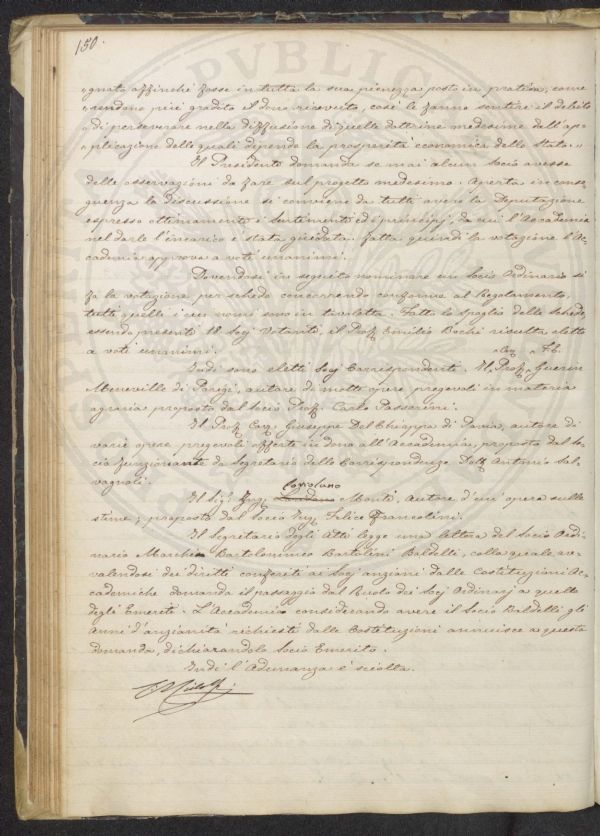 150.
"gnata affinchè fosse in tutta la sua pienezza posto in pratica, come
"rendono più gradito il dono ricevuto, così le fanno sentire il debito
"di perseverare nella diffusione di quelle dottrine medesime dall'ap-
"plicazione delle quali dipende la prosperità economica dello Stato."
Il Presidente domanda se mai alcun Socio avesse
delle osservazioni da fare sul progetto medesimo. Aperta in conse-
guenza la discussione si conviene da tutti avere la Deputazione
espresso ottimamente i sentimenti ed i principj, da cui l'Accademia
nel darle l'incarico è stata guidata. Fatta quindi la votazione l'Ac-
cademia approva a voti unanimi.
Dovendosi in seguito nominare un Socio Ordinario si
fa la votazione per schede concorrendo conforme al Regolamento,
tutti quelli i cui nomi sono in tavoletta. Fatto lo spoglio delle schede,
essendo presenti 18 Socj Votanti, il Prof. Emilio Bechi resulta eletto
a voti unanimi.
Indi sono eletti Socj Corrispondenti. Il Prof. Cav. F. E. Guerin
Meneville di Parigi, autore di molte opere pregevoli in materia
agraria proposto dal Socio Prof. Carlo Passerini.
Il Prof. Cav. Giuseppe Del Chiappa di Pavia, autore di
varie opere pregevoli offerte in dono all'Accademia, proposto dal So-
cio funzionante da Segretario delle Corrispondenze Dott. Antonio Sal-
vagnoli.
Coriolano
Il Sig. Ing. Monti, Autore d'un'opera sulle
stime, proposto dal Socio Ing. Felice Francolini.
Il Segretario degli Atti legge una lettera del Socio Ordi-
nario Marchese Bartolommeo Bartolini Baldelli, colla quale av-
valendosi dei diritti conferiti ai Socj anziani dalle Costituzioni Ac-
cademiche domanda il passaggio dal Ruolo dei Socj Ordinarj a quello
degli Emeriti. L'Accademia considerando avere il Socio Baldelli gli
Anni d'anzianità richiesti dalle Costituzioni annuisce a questa
domanda, dichiarandolo Socio Emerito.
Indi l'Adunanza è sciolta.